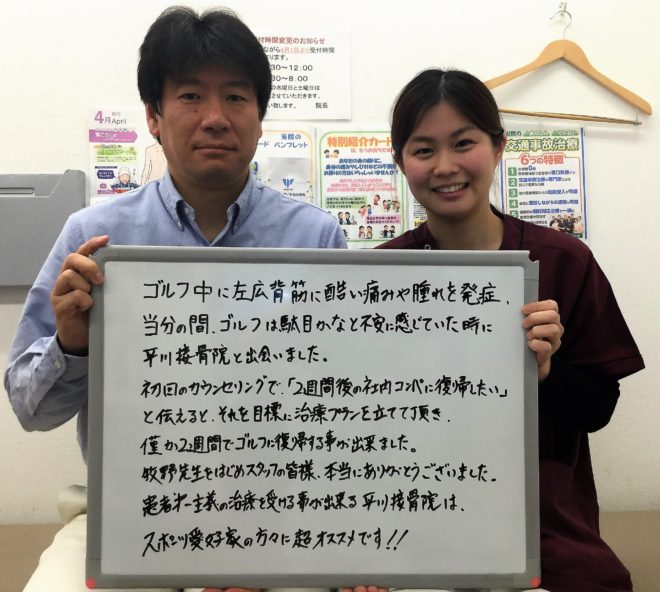 付時間変更のお知らせ
ながら4月1日より受付時間
30～12:00
30～8:00
の水曜日と土曜日は
させていただきます。
い致します。 院長
4月 April
カード
当院の
パンフレット
特別紹介カード
交通事故治療
6つの特徴
1
2
3
4
5
ゴルフ中に左広背筋に酷い痛みや腫れを発症、
当分の間、ゴルフは駄目かなと不安に感じていた時に
平川接骨院と出会いました。
初回のカウンセリングで、「2週間後の社内コンペに復帰したい」
と伝えると、それを目標に治療プランを立てて頂き、
僅か2週間でゴルフに復帰する事が出来ました。
牧野先生をはじめスタッフの皆様、本当にありがとうございました。
患者第一主義の治療を受ける事が出来る平川接骨院は、
スポーツ愛好家の方々に超オススメです!!